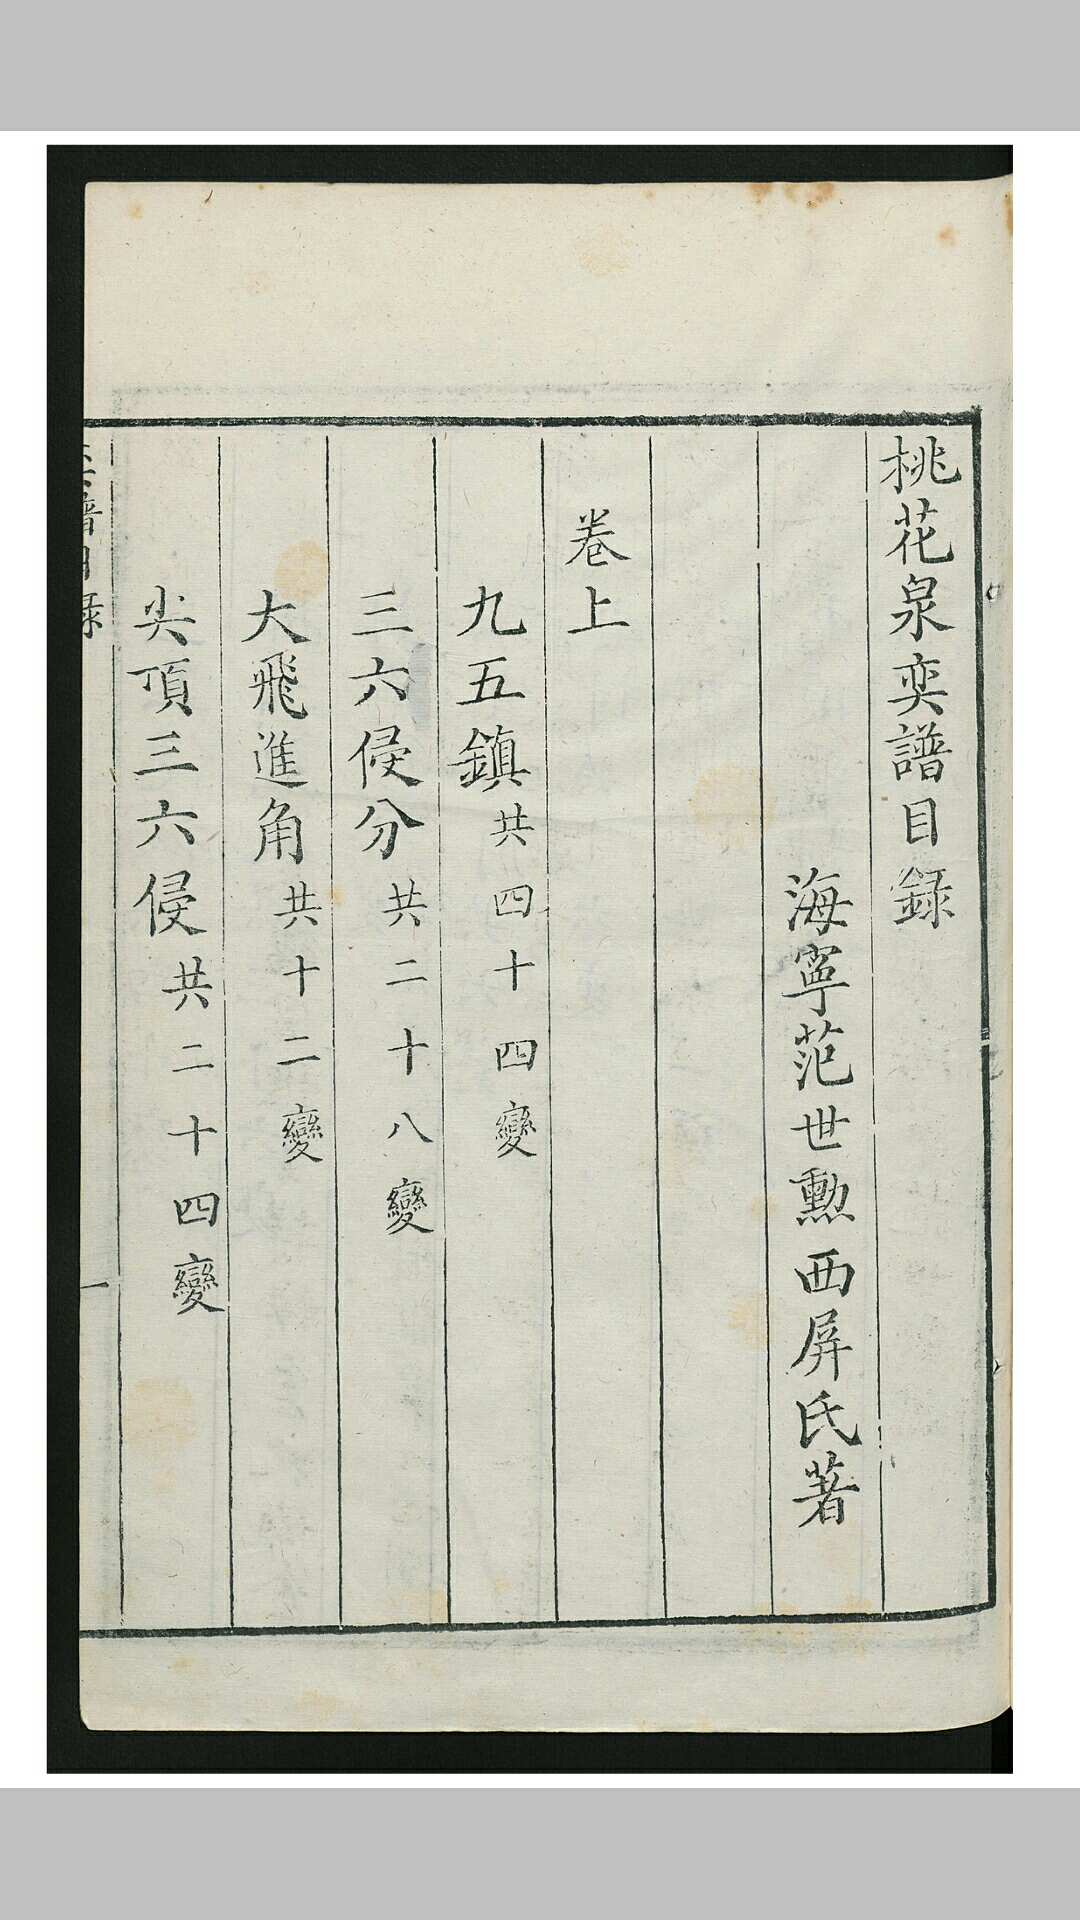 桃花泉奕譜目録
海寧范世勲西屏氏著
卷上
九五鎮共四十四變
三六侵分共二十八變
大飛進角共十二變
尖頂三六侵共二十四變
奕譜目録
一